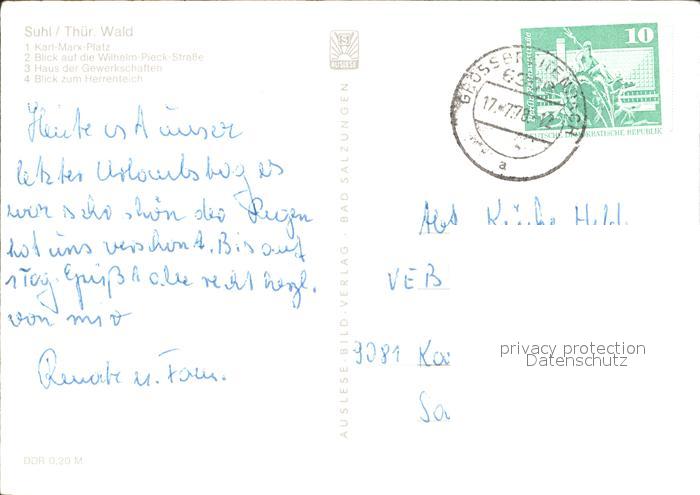 Suhl / Thür. Wald
1 Karl-Marx-Platz
2 Blick auf die Wilhelm-Pieck-Straße
3 Haus der Gewerkschaften
4 Blick zum Herrenteich
AUSLESE
Heute ist unser
letzter Urlaubstag es
war scho schön der Regen
hat uns verschont. Bis auf
1 Tag. Grüßt alle recht herzl.
von mir
Renate u. Fam.
DDR 0,20 M
AUSLESE-BILD-VERLAG · BAD SALZUNGEN
10
DEUTSCHE DEMOKRATISCHE REPUBLIK
17.-7.78-12
a
Abt. Küche
VEB
9081 Ka
Sa
privacy protection
Datenschutz